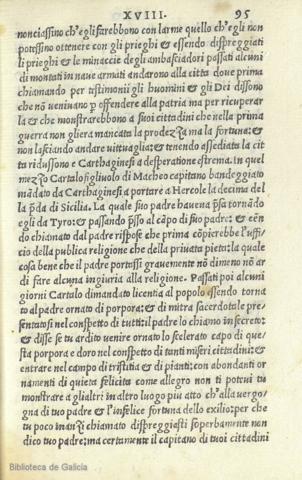 XVIII. 95
nonciassino ch'egli farebbono con l'arme quello ch'egli non
potessino ottenere con gli prieghi & essendo dispreggiati
li prieghi & le minaccie degli ambasciadori passati alcuni
di montati in naue armati andarono alla citta doue prima
chiamando per testimonii gli huomini & gli Dei dissono
che nō ueniuano ꝑ offendere alla patria ma per ricuperar
la & che monstrarebbono a suoi cittadini che nella prima
guerra non gliera mancata la prodezza ma la fortuna: &
non lasciando andare uittuaglia: & tenendo assediata la cit
ta ridussono e Carthaginesi a desperatione estrema. In quel
mezzo Cartalo figliuolo di Macheo capitano bandeggiato
mādato da Carthaginesi a portare a Hercole la decima del
la p̄da di Sicilia. La quale suo padre haueua p̄sa tornādo
egli da Tyro: & passando p̄sso al cāpo di suo padre: & eēn
do chiamato dal padre rispose che prima cōpierebbe l'uffi
cio della publica religione che della priuata pieta: la quale
cosa bene che il padre portassi grauemente nō dimeno nō ar
di fare alcuna ingiuria alla religione. Passati poi alcuni
giorni Cartalo dimandato licentia al popolo essendo torna
to al padre ornato di porpora: & di mitra sacerdotale pre
sentatosi nel conspetto di tutti: il padre lo chiamo in secreto:
& disse se tu ardito uenire ornato lo scelerato capo di que/
sta porpora e d'oro nel conspetto di tanti miseri cittadini: &
entrare nel campo di tristitia & di pianti: con abondanti or
namenti di quieta felicita come allegro non ti potui tu
monstrare a gli altri in altro luogo piu atto ch'alla uergo/
gna di tuo padre & l'infelice fortuna dello exilio: per che
tu poco inanzi chiamato dispreggiasti soperbamente non
dico tuo padre: ma certamente il capitano di tuoi cittadini
Biblioteca de Galicia